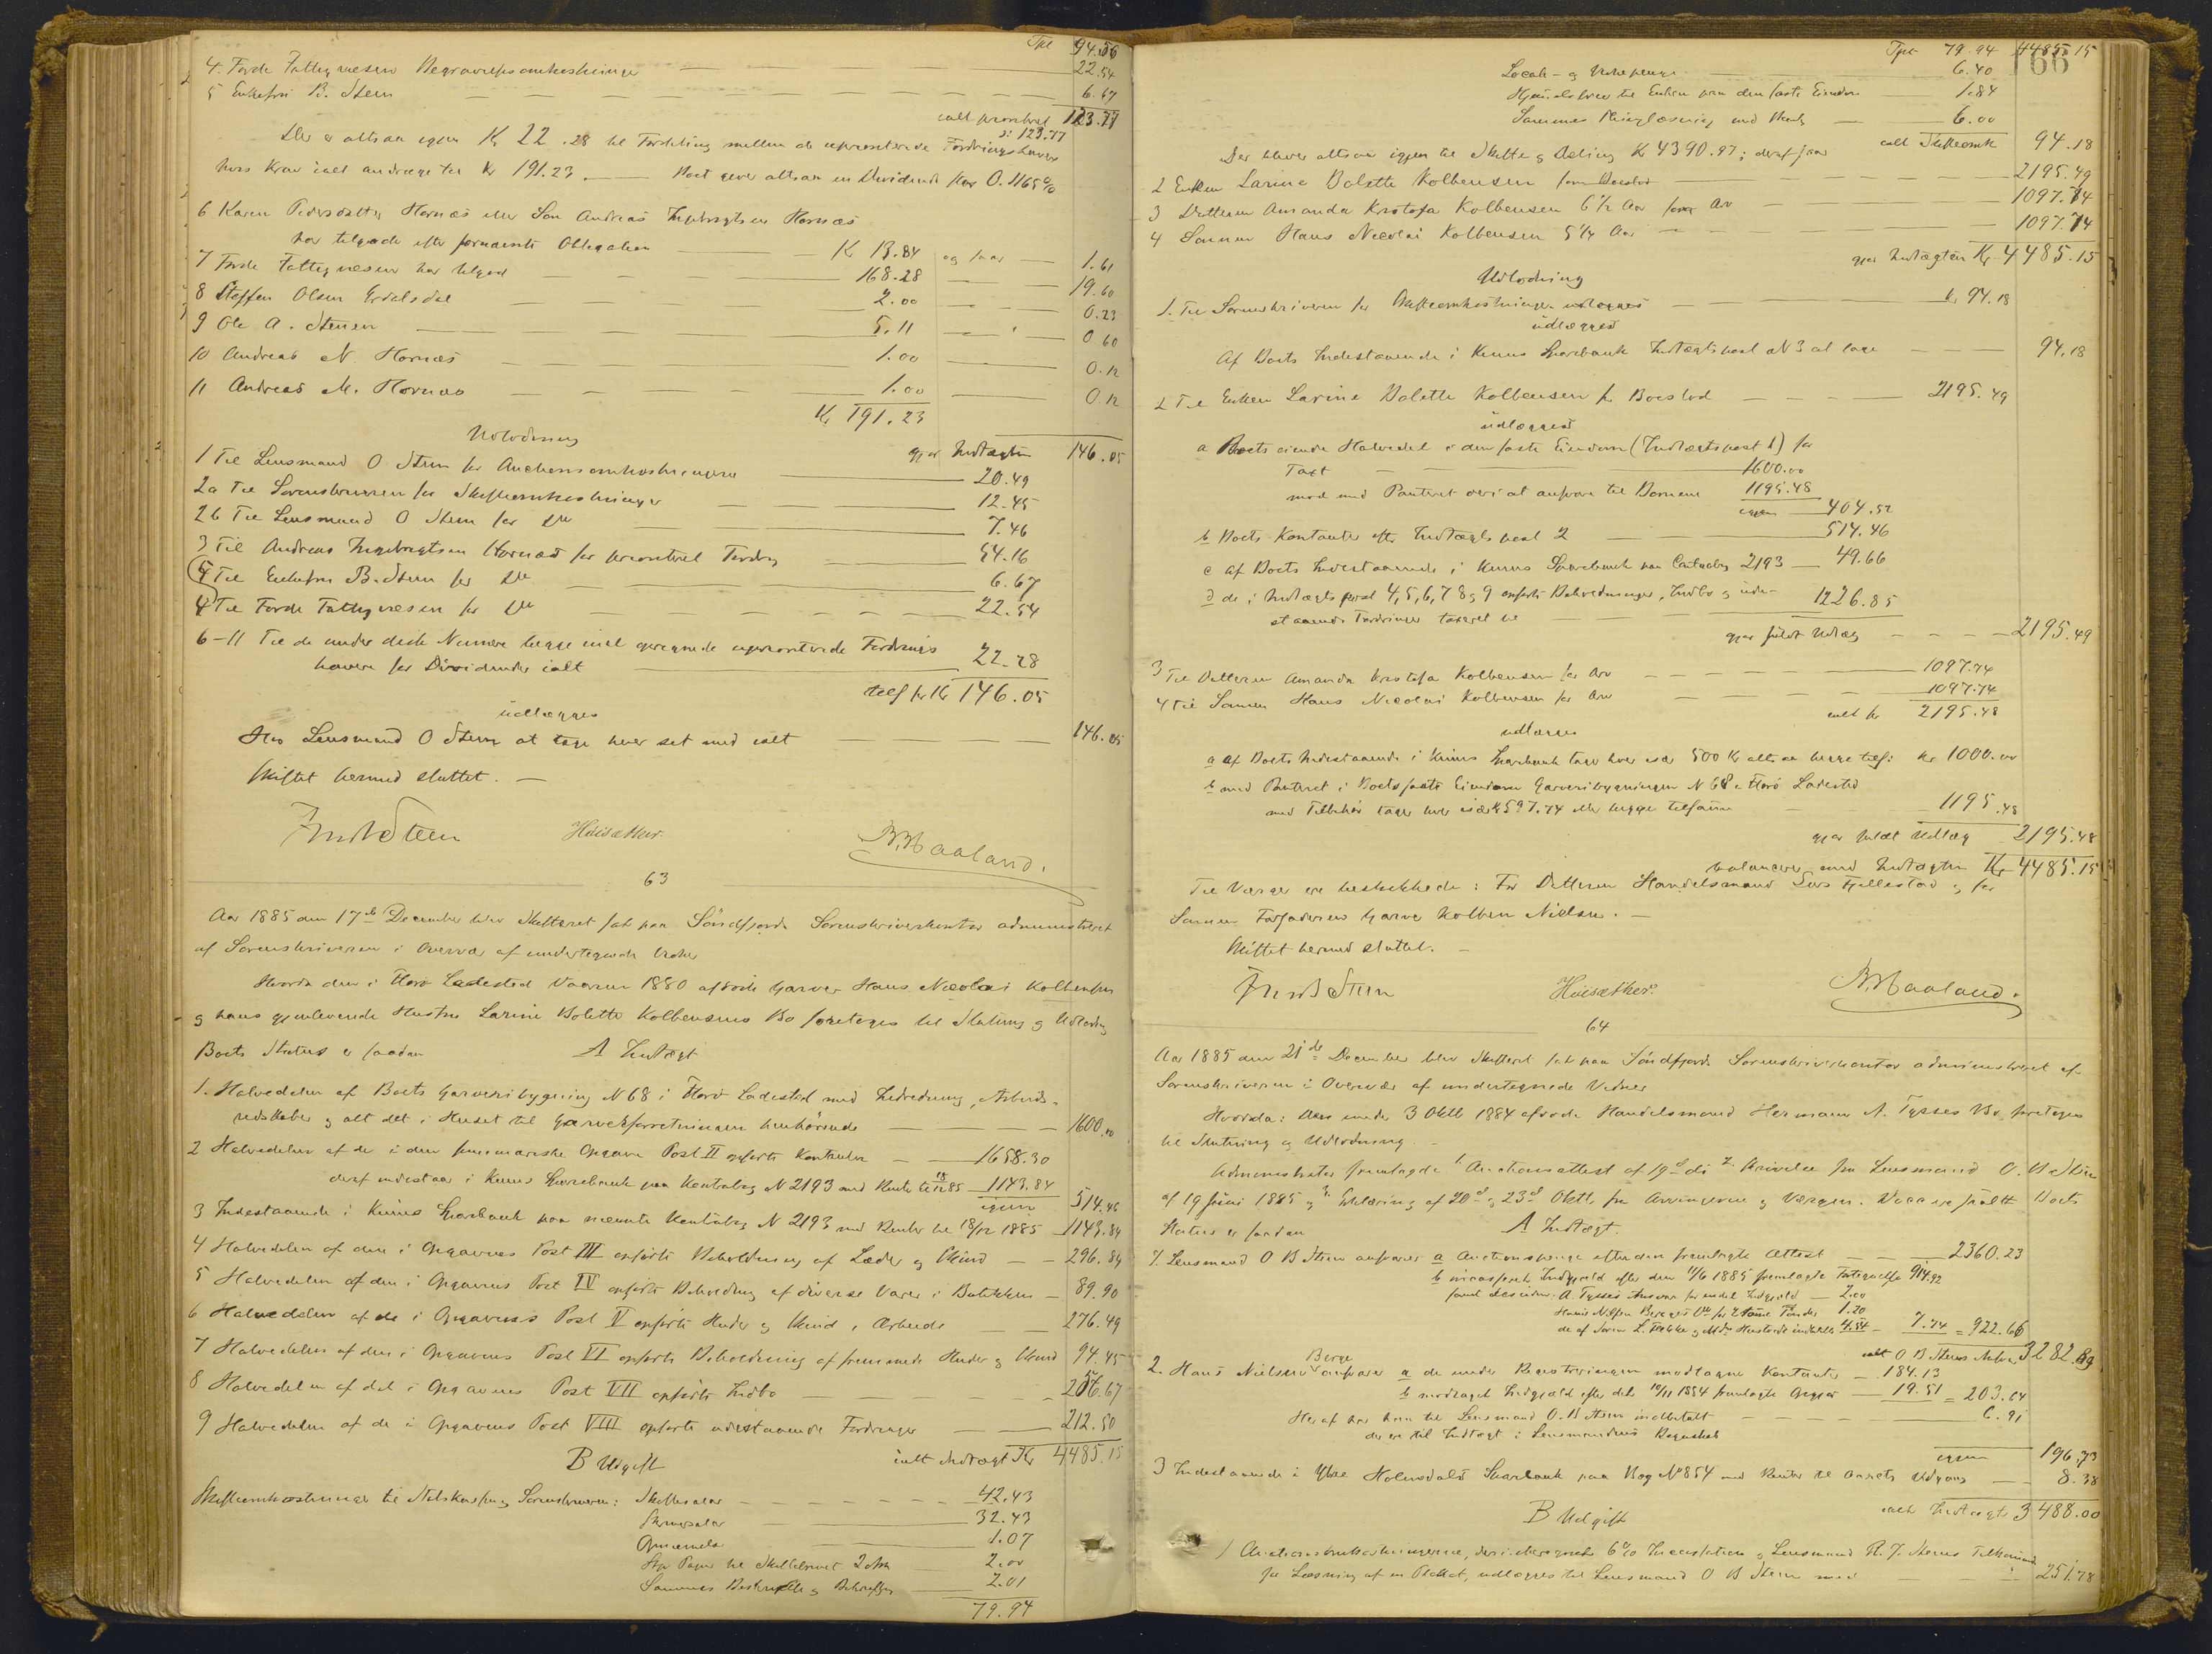 Tpt 94.56
4. Førde Fattigvæsen Begravelsesomkostninger 22.54
5 Enkefru B. Steen 6.67
ialt prioriteret 123.77
Der er altsaa igjen Kr 22.28 til Fordeling mellem de uprioriterede Fordringshavere
hvis Krav ialt andrager til Kr 191.23. Boet giver altsaa en Dividende stor 0.1165 %
6 Karen Pedersdatter Hornæs eller Søn Andreas Ingebrigtsen Hornæs
har tilgode efter Obligation Kr 13.84 og faar 1.61
7 Førde Fattigvæsen har tilgode 168.28 19.60
8 Steffen Olsen Erdalsdal 2.00 0.23
9 Ole A. Stensen 5.11 0.60
10 Andreas N. Hornæs 1.00 0.12
11 Andreas M. Hornæs 1.00 0.12
Kr 191.23
Udlodning gjør Indtægten 146.05
1 Til Lensmand O Steen for Auctionsomkostningerne 20.49
2a Til Sorenskriveren for Skifteomkostninger 12.45
2b Til Lensmand O Steen for Do 7.46
3 Til Andreas Ingebrigtsen Hornæs for prioriteret Fordring 54.16
5 Til Enkefru B. Steen for Do 6.67
4 Til Førde Fattigvæsen for Do 22.54
6-11 Til de under disse Numere uprioriterede Fordrings
havere for Dividender ialt 22.28
tils Kr 146.05
udlægges
Hos Lensmand O Steen at tage hver sit med ialt 146.05
Skiftet hermed sluttet. —
Steen Høisæther. B. Haaland.
63
Aar 1885 den 17de December blev Skifteret sat paa Søndfjords Sorenskriverkontor administreret
af Sorenskriveren i Overvær af undertegnede Vidner
Hvorda den i Florø Ladested Vaaren 1880 afdøde Garver Hans Nicolai Kolbensen
og hans gjenlevende Hustru Larine Bolette Kolbensens Bo foretoges til Slutning og Udlodning
Boets Status er saadan A Indtægt
1. Halvedelen af Boets Garveribygning N 68 i Florø Ladested med Indredning, Arbeids-
redskaber og alt det i Huset til Garverforretningen henhørende 1600.00
2 Halvedelen af de i den summariske Opgave Post II opførte Kontanter 1658.30
deraf indestaar i Kinns Sparebank paa Kontrabog N 2193 med Renter til 18/12 85 1143.84
igjen 514.46
3 Indestaaende i Kinns Sparbank paa nævnte Kontrabog N 2193 med Renter til 18/12 1885 1143.84
4 Halvedelen af den i Opgavens Post III opførte Beholdning af Læder og Skind 296.84
5 Halvedelen af den i Opgavens Post IV opførte Beholdning af diverse Varer i Butikken 89.90
6 Halvedelen af de i Opgavens Post V opførte Huder og Skind i Arbeide 276.49
7 Halvedelen af den i Opgavens Post VI opførte Beholdning af fremmede Huder og Skind 94.45
8 Halvedelen af det i Opgavens Post VII opførte Indbo 256.67
9 Halvedelen af de i Opgavens Post VIII opførte udestaaende Fordringer 212.50
B Udgift ialt Indtægt Kr 4485.15
Skifteomkostninger til Statskassen og Sorenskriveren: Skiftesalær 42.43
Skriversalær 32.43
1.07
Stp Papir til Skiftebrevet 2.00
Sammes Beskrivelse og Bekræftelse 2.01
79.94
166
Tpt 79.94 4485.15
Locale- og 6.40
Hjemmelsbrev til Enken paa den faste Eiendom 1.84
Sammes Thinglæsning 6.00
ialt Skifteomk 94.18
Der bliver altsaa igjen til Skifte og Deling Kr 4390.97; deraf faar
2 Enken Larine Bolette Kolbensen som Boeslod 2195.49
3 Datteren Amanda Kristofa Kolbensen 6 1/2 Aar som Arv 1097.74
4 Sønnen Hans Nicolai Kolbensen 5 1/4 Aar 1097.74
gjør Indtægten Kr 4485.15
Udlodning
1. Til Sorenskriveren for Skifteomkostninger Kr 94.18
udlægges
Af Boets Indestaaende i Kinns Sparebank Indtægtspost N 3 at tage 94.18
2 Til Enken Larine Bolette Kolbensen for Boeslod 2195.49
udlægges
a Boets eiende Halvedel i den faste Eiendom (Indtægtspost 1) for
Taxt 1600.00
mod med Panteret deri at ansvare til Børnene 1195.48
igjen 404.52
b Boets Kontanter efter Indtægtspost 2 514.46
c af Boets Indestaaende i Kinns Sparebank paa Contrabog 2193 49.66
d de i Indtægtspost 4, 5, 6, 7 8 og 9 opførte Beholdninger, Indbo og ude-
staaende Fordringer taxeret til 1226.85
gjør fuldt Udlæg 2195.49
3 Til Datteren Amanda Kristofa Kolbensen for Arv 1097.74
4 Til Sønnen Hans Nicolai Kolbensen for Arv 1097.74
ialt Kr 2195.48
udlægges
a af Boets Indestaaende i Kinns Sparebank tage hver især 500 Kr altsaa begge tils: Kr 1000.00
b med Panteret i Boets faste Eiendom Garveribygningen N 68 i Florø Ladested
med Tilbehør tager hver især Kr 597.74 eller begge tilsammen 1195.48
gjør fuldt Udlæg 2195.48
balancerer med Indtægten Kr 4485.15
Til Værger ere beskikkede: For Datteren Handelsmand Lars Fjellestad og for
Sønnen Farfaderen Garver Kolben Nielsen. —
Skiftet hermed sluttet. —
Steen Høisæther. B. Haaland.
64
Aar 1885 den 21de December blev Skifteret sat paa Søndfjords Sorenskriverkontor administreret af
Sorenskriveren i Overvær af undertegnede Vidner
Hvorda: den 3 Oktb 1884 afdøde Handelsmand Hermann A. Tysses Bo foretoges
til Slutning og Udlodning. —
Administrator fremlagde 1. Auctionsattest af 19de ds 2. Skrivelse fra Lensmand O. B Steen
af 19 Juni 1885 og 3. Erklæring af 20de og 23de Oktb. fra Arvingerne og Værgen. Boets
Status er saadan A Indtægt.
1. Lensmand O B Steen ansvarer a Auctionspenge efter den fremlagte Attest 2360.23
b incasseret Indgjæld efter den 11/6 1885 fremlagte Fortegnelse 914.92
A. Tysses Ansvar for endel Indgjæld 2.00
Hans Nilsen Berges Do for 2 tomme Tønder 1.20
4.54 7.74 = 922.66
ialt O B Steens Ansvar 3282.89
2. Hans Nielsen Berge ansvarer a de under Registreringen modtagne Kontanter 184.13
b modtaget Indgjæld efter dets 10/11 1884 fremlagte Opgjør 19.51 = 203.64
Heraf har han til Lensmand O. B Steen indbetalt 6.91
der ere til Indtægt i Lensmandens Regnskab
igjen 196.73
3 Indestaaende i Ytre Holmedals Sparbank paa Bog No 854 med Renter til Aarets Udgang 8.38
B Udgift ialt Indtægt 3488.00
1 Auctionsomkostningerne, deri iberegnet 6 % Incassation og Lensmand R. J. Steens Tilkommende
for Læsning af en Placat, udlægges til Lensmand O B Steen med 251.78